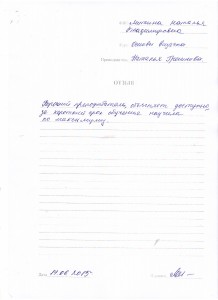 Ф.И.О. Наталья
Владимировна
Курс: Основы визажа
Преподаватель: Наталья
ОТЗЫВ
Хороший преподаватель, объясняет доступно,
за короткий срок обучения научила
по максимуму.
Дата 19.08.2015
Подпись